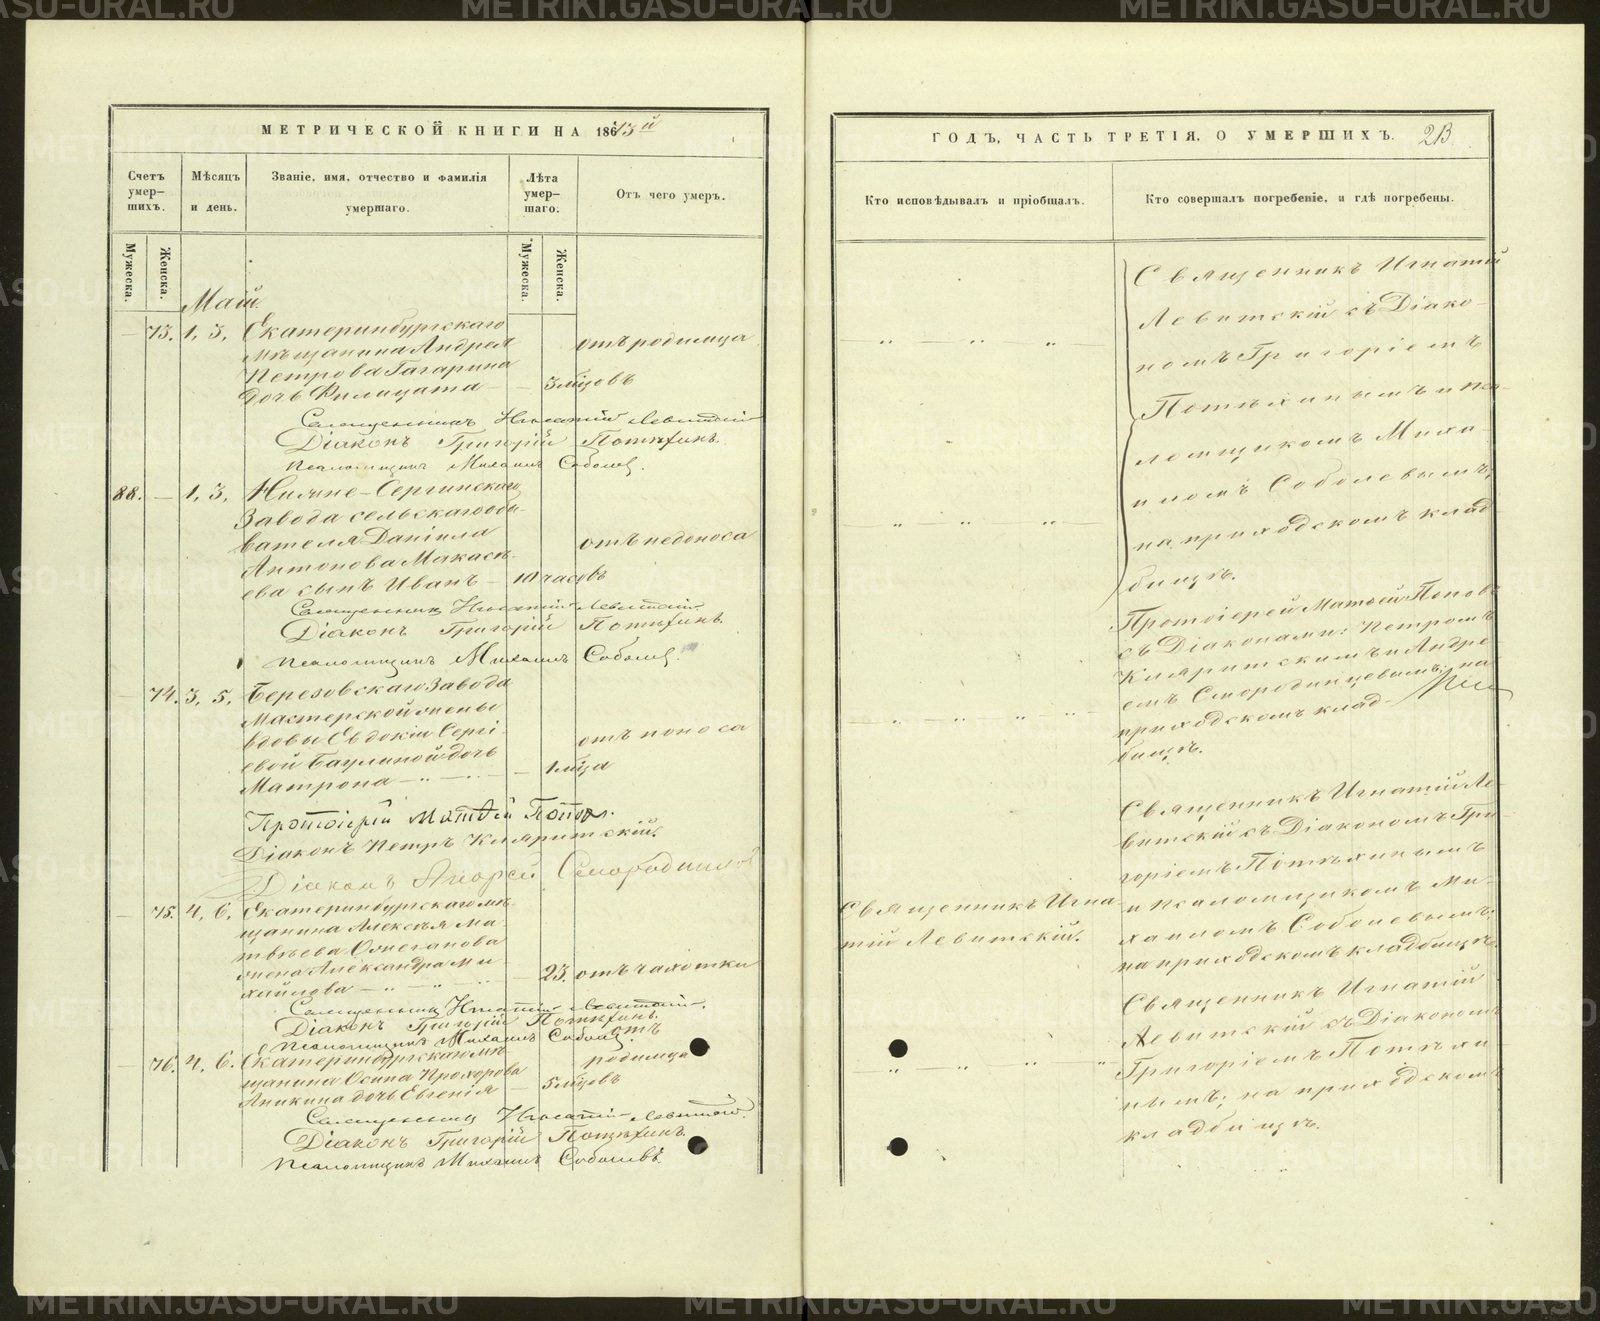 МЕТРИЧЕСКОЙ КНИГИ НА 1873й
Счетъ умер-
шихъ.
Мѣсяцъ
и день.
Званіе, имя, отчество и фамилія
умершаго.
Лѣта
умер-
шаго.
Отъ чего умеръ.
Мужеска.
Женска.
Мужеска.
Женска.
Май
— 73. 1, 3, Екатеринбургскаго
мѣщанина Андрея отъ родимца
Петрова Гагарина
дочь Филицата — — 3 мѣцовъ
Священникъ Игнатій Левитскій
Діаконъ Григорій Потѣхинъ.
Псаломщикъ Михаилъ Соболев.
88. — 1, 3, Нижне-Сергинскаго
Завода сельскаго обы-
вателя Даніила отъ недоноса
Антонова Макась-
ева сынъ Иванъ — 10 часовъ
Священникъ Игнатій Левитскій
Діаконъ Григорій Потѣхинъ
Псаломщикъ Михаилъ Соболев.
— 74. 3, 5, Березовскаго Завода
Мастерской жены
вдовы Евдокіи Сергі- отъ поноса
евой Баулиной дочь
Матрона — — 1 мѣца
Протоіерій Матѳей Попов.
Діаконъ Петръ Кляритскій.
Діаконъ Андрей Смородинцов
— 75. 4, 6, Екатеринбургскаго мѣ-
щанина Алексѣя Ма-
твѣева Ожеганова
жена Александра Ми- — 23. отъ чахотки
хайлова —
Священникъ Игнатій Левитскій.
Діаконъ Григорій Потѣхинъ.
Псаломщикъ Михаилъ Соболев.
— 76. 4, 6. Екатеринбургскаго мѣ- отъ
щанина Осипа Прохорова родимца
Аникина дочь Евгенія — 5 мѣцовъ
Священникъ Игнатій Левитскій.
Діаконъ Григорій Потѣхинъ.
Псаломщикъ Михаилъ Соболевъ.
ГОДЪ, ЧАСТЬ ТРЕТІЯ, О УМЕРШИХЪ. 213
Кто исповѣдывалъ и пріобщалъ.
Кто совершалъ погребеніе, и гдѣ погребены.
Священникъ Игнатій
Левитскій съ Діако-
номъ Григоріемъ
Потѣхинымъ и пса-
ломщикомъ Миха-
иломъ Соболевымъ;
на приходскомъ клад-
бищѣ.
Протоіерей Матѳей Поповъ
съ Діаконами: Петромъ
Кляритскимъ и Андре-
емъ Смородинцовымъ; на
приходскомъ клад-
бищѣ.
Священникъ Игнатій Ле-
витскій съ Діакономъ Гри-
горіемъ Потѣхинымъ
Священникъ Игна- и псаломщикомъ Ми-
тій Левитскій. хаиломъ Соболевымъ;
на приходскомъ кладбищѣ.
Священникъ Игнатій
Левитскій съ Діакономъ
Григоріемъ Потѣхи-
нымъ; на приходскомъ
кладбищѣ.
METRIKI.GASU-URAL.RU